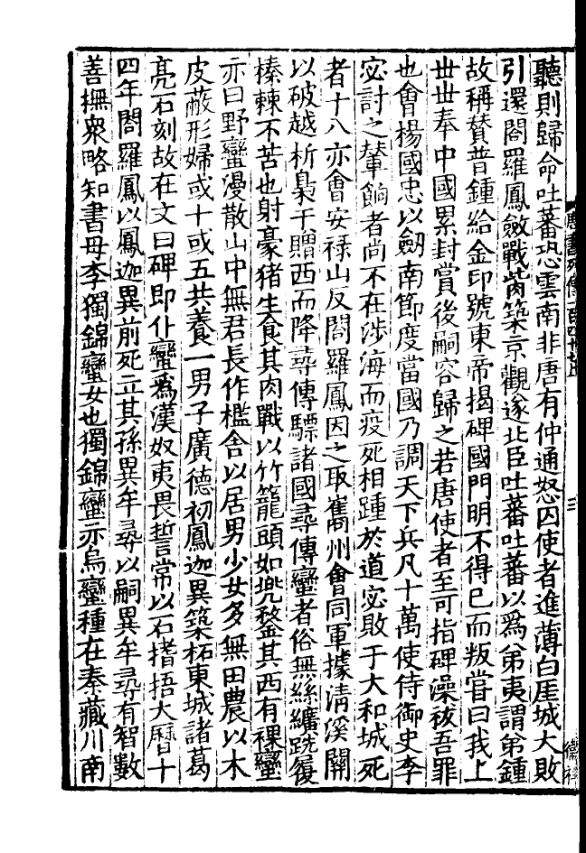 聽則歸命吐蕃恐雲南非唐有仲通怒囚使者進薄白崖城大敗
引還閤羅鳳斂戰胔築京觀遂北臣吐蕃吐蕃以爲弟夷謂弟鍾
故稱贊普鍾給金印號東帝揭碑國門明不得已而叛嘗曰我上
世世奉中國累封賞後嗣容歸之若唐使者至可指碑澡祓吾罪
也會楊國忠以劒南節度當國乃調天下兵凡十萬使侍御史李
宓討之輦餉者尚不在涉海而疫死相踵於道宓敗于大和城死
者十八亦會安祿山反閤羅鳳因之取巂州會同軍據清溪關
以破越析梟于贈西而降尋傳驃諸國尋傳蠻者俗無絲纊跣履
榛棘不苦也射豪猪生食其肉戰以竹籠頭如兜鍪其西有裸蠻
亦曰野蠻漫散山中無君長作檻舍以居男少女多無田農以木
皮蔽形婦或十或五共養一男子廣德初鳳迦異築柘東城諸葛
亮石刻故在文曰碑即仆蠻爲漢奴夷畏誓常以石搘捂大曆十
四年閤羅鳳以鳳迦異前死立其孫異牟尋以嗣異牟尋有智數
善撫衆略知書母李獨錦蠻女也獨錦蠻亦烏蠻種在秦藏川南